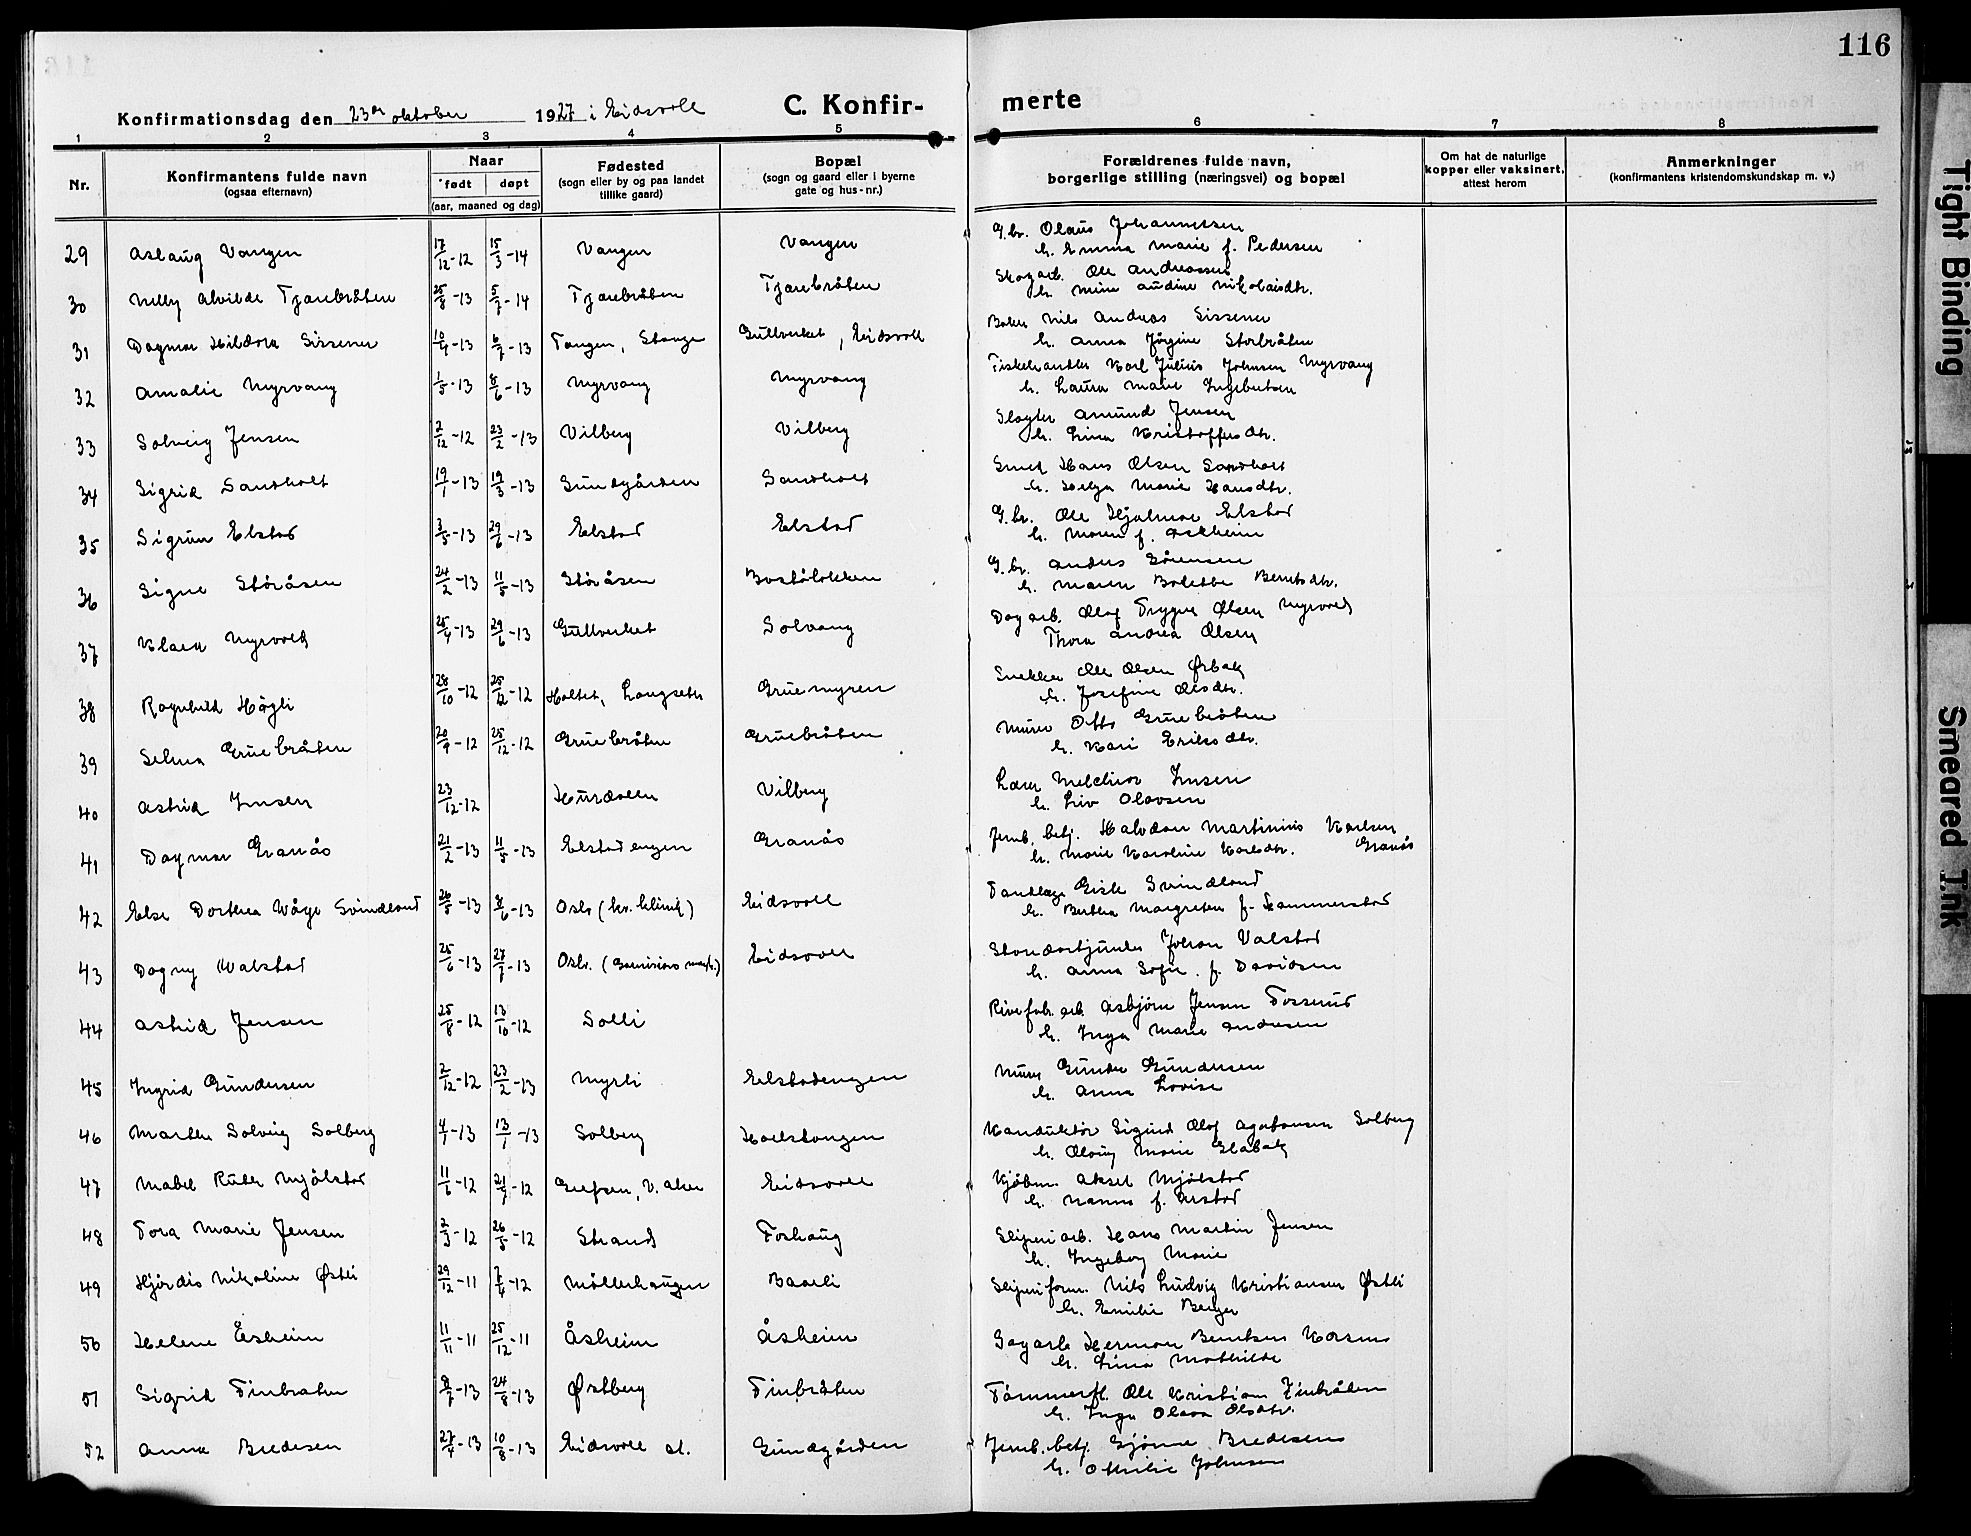 116
Konfirmationsdag den 23de oktober 1927 i Eidsvoll
C. Konfir-
merte
1 2 3 4 5 6 7 8
Nr.
Konfirmantens fulde navn
(ogsaa efternavn)
Naar
født døpt
(aar, maaned og dag)
Fødested
(sogn eller by og paa landet
tillike gaard)
Bopæl
(sogn og gaard eller i byerne
gate og hus-nr.)
Forældrenes fulde navn,
borgerlige stilling (næringsvei) og bopæl
Om hat de naturlige
kopper eller vaksinert,
attest herom
Anmerkninger
(konfirmantens kristendomskundskap m. v.)
29 Aslaug Vangen 17/12-12 15/3-14 Vangen Vangen G.br. Olaus Johannessen
h. Emma Marie f. Pedersen
30 Nelly Alvilde Tjærebråten 25/8-13 5/7-14 Tjærebråten Tjærebråten Skogarb. Ole Andreassen
h. Mina Audine Nikolaisdtr.
31 Dagmar Hildora Sissener 10/4-13 6/7-13 Tangen, Stange Gullverket, Eidsvoll Baker Nils Andreas Sissener
h. Anna Jørgine Storbråten
32 Amalie Myrvang 1/5-13 8/6-13 Myrvang Myrvang Fiskehandler Karl Julius Johnsen Myrvang
h. Laura Marie Ingebretsen
33 Solveig Jensen 2/12-12 23/2-13 Vilberg Vilberg Slagter Amund Jensen
h. Lina Kristoffersdtr.
34 Sigrid Sandholt 19/1-13 19/3-13 Sundgården Sandholt Smed Hans Olsen Sandholt
h. Helga Marie Hansdtr.
35 Sigrun Elstad 3/5-13 29/6-13 Elstad Elstad G.br. Ole Hjalmar Elstad
h. Maren f. Askheim
36 Signe Støråsen 24/2-13 11/5-13 Støråsen Bostoløkken G.br. Anders Sørensen
h. Maren Bolette Berntsdtr.
37 Klara Myrvold 25/4-13 29/6-13 Gullverket Solvang Dagarb. Olaf Trygve Olsen Myrvold
Thora Andrea Olsen
38 Ragnhild Høgli 28/10-12 25/12-12 Holtet, Langseter Gruemyren Snekker Ole Olsen Ørbak
h. Josefine Olsdtr.
39 Selma Gruebråten 20/9-12 25/12-12 Gruebråten Gruebråten Murer Otto Gruebråten
h. Kari Eriksdtr.
40 Astrid Jensen 23/12-12 Hurdalen Vilberg Lærer Melchior Jensen
h. Liv Olavsen
41 Dagmar Granås 21/2-13 11/5-13 Elstadengen Granås Jernb. betj. Halvdan Martinius Karlsen
h. Marie Karoline Karlsdtr. Granås
42 Else Dorthea Våge Svindland 26/5-13 8/6-13 Oslo (kv. klinik) Eidsvoll Tandlæge Svindland
h. Bertha Margrethe f. Hammerstad
43 Dagny Walstad 25/6-13 27/7-13 Oslo. Eidsvoll Standartjunker Johan Valstad
h. Anna Sofie. f. Davidsen
44 Astrid Jensen 25/8-12 13/10-12 Solli Asbjørn Jensen Fosserud
h. Inga Marie Andresen
45 Ingrid Gundersen 2/12-12 23/2-13 Myrli Elstadengen Murer Gunder Gundersen
h. Anna Lovise
46 Marthe Solveig Solberg 4/1-13 13/1-13 Solberg Haelstangen Konduktør Sigurd Olaf Agathonsen Solberg
h. Olaug Marie Habak
47 Mabel Ruth Mjølstad 11/6-12 21/7-12 Grefsen, V. Aker Eidsvoll Kjøbm. Aksel Mjølstad
h. Nanna f. Årstad
48 Tora Marie Jensen 2/3-12 26/5-12 Strand Foshaug Sliperiarb. Hans Martin Jensen
h. Ingeborg Marie
49 Hjørdis Nikoline Østli 29/12-11 2/4-12 Møllerhaugen Baarli Sliperiform. Nils Ludvig Kristiansen Østli
h. Emilie Berger
50 Helene Åsheim 11/11-11 25/12-11 Åsheim Åsheim Sagarb. Herman Berntsen Korsmo
h. Lina Mathilde
51 Sigrid Finbråten 8/7-13 24/8-13 Østberg Finbråten Tømmerfl. Ole Kristian Finbråten
h. Inga Olava Olsdtr.
52 Anna Bredesen 27/4-13 10/8-13 Eidsvoll st. Sundgården Jernb. betj. Bredesen
h. Othilie Johnsen
Tight Binding
Smeared Ink